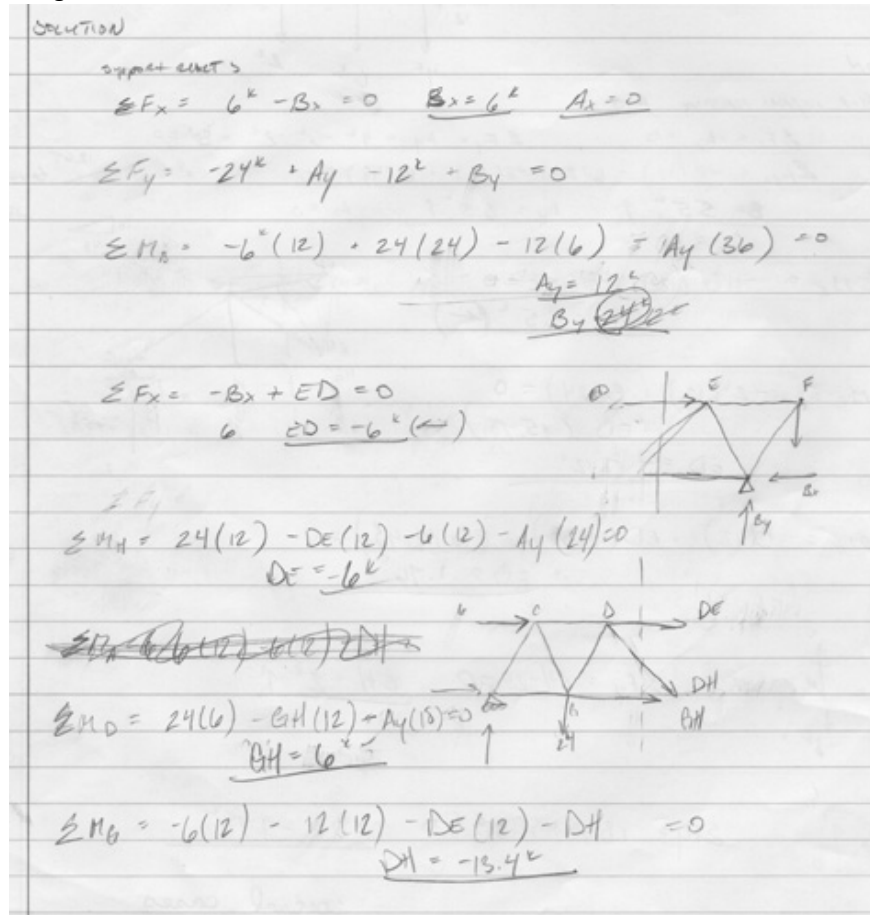 SOLUTION
support react s
ΣFx = 6ᵏ - Bx = 0 Bx = 6ᵏ Ax = 0
ΣFy = -24ᵏ + Ay - 12ᵏ + By = 0
ΣMB = -6ᵏ(12) + 24(24) - 12(6) - Ay(36) = 0
Ay = 12ᵏ
By 24ᵏ
ΣFx = -Bx + ED = 0
6 ED = -6ᵏ (↔)
ED E F
Bx
By
ΣFy
ΣMH = 24(12) - DE(12) - 6(12) - Ay(24) = 0
DE = -6ᵏ
6 C D DE
DH
GH
24
ΣMD = 24(6) - GH(12) - Ay(18) = 0
GH = 6ᵏ
ΣMG = -6(12) - 12(12) - DE(12) - DH = 0
DH = -13.4ᵏ